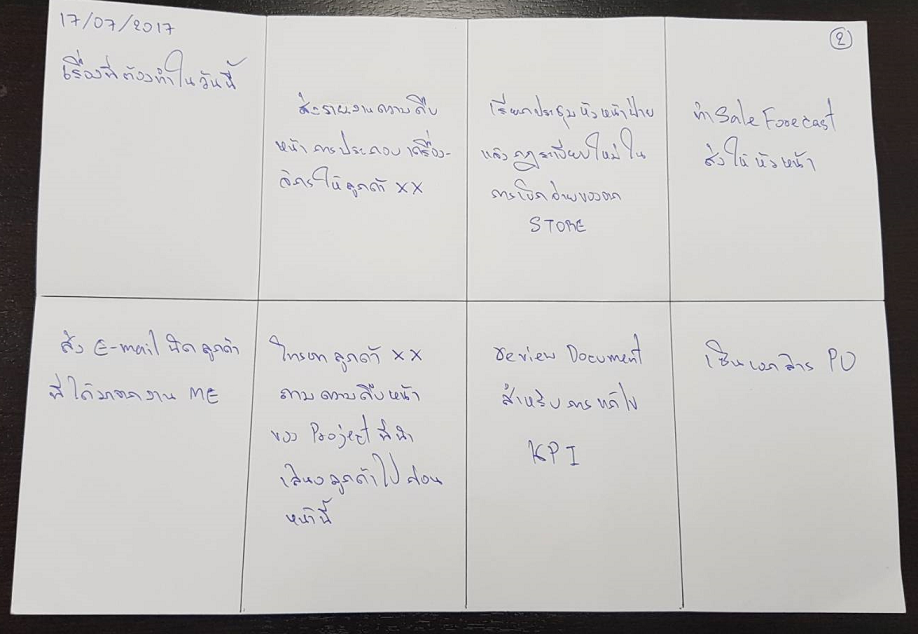 17/07/2017
เรื่องที่ต้องทำในวันนี้
ส่งรายงานความคืบ
หน้าการประกอบเครื่อง-
จักรให้ลูกค้า XX
เรียกประชุมหัวหน้าฝ่าย
แล้วกฎระเบียบใหม่ใน
การเบิกจ่ายของจาก
STORE
2
ทำ Sale Forecast
ส่งให้หัวหน้า
ส่ง E-mail นัดลูกค้า
ที่ได้มาจากงาน ME
โทรหาลูกค้า XX
ตามความคืบหน้า
ของ Project ที่นำ
เสนอลูกค้าไปก่อน
หน้านี้
review Document
สำหรับการแก้ไข
KPI
เซ็นเอกสาร PO